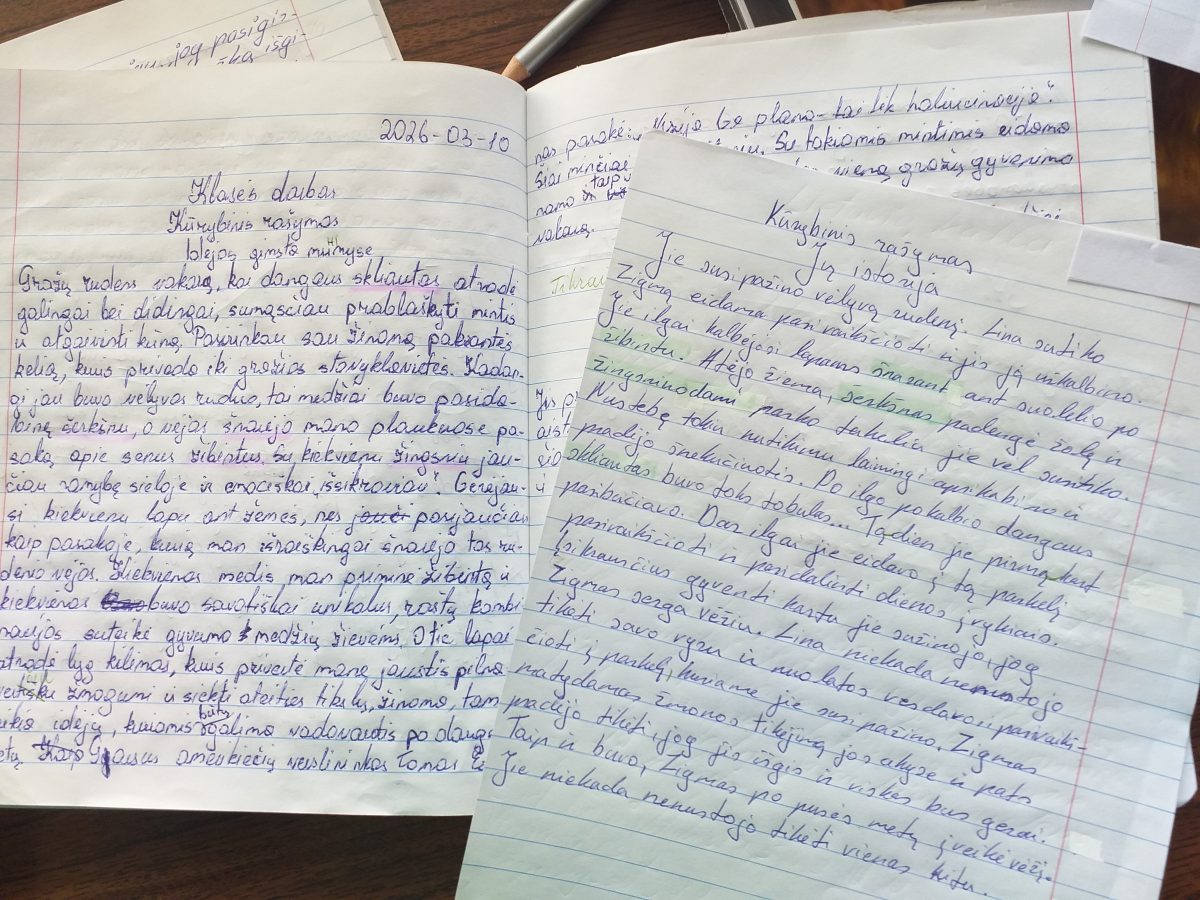 jog pasigir-
išgi-
2026-03-10
Klasės darbas
Kūrybinis rašymas
Idėjos gimsta mumyse
Gražų rudens vakarą, kai dangaus skliautas atrodė
galingai bei didingai, sumąsčiau prablaškyti mintis
ir atgaivinti kūną. Pasirinkau sau žinomą pakrantės
kelią, kuris privedė iki gražios stovyklavietės. Kadan-
gi jau buvo vėlyvas ruduo, tai medžiai buvo pasida-
binę šerkšnu, o vėjas šnarėjo mano plaukuose pa-
saką apie senus žibintus. Su kiekvienu žingsniu jau-
čiau ramybę sieloje ir emociškai „išsikroviau". Gėrėjau-
si kiekvienu lapu ant žemės, nes jauči pasijaučiau
kaip pasakoje, kurią man išraiškingai šnarėjo tas ru-
denio vėjas. Kiekvienas medis man priminė žibintą ir
kiekvienas buvo savotiškai unikalus, raštų kombi
nacijos suteikė gyvumo medžių žievėms. O tie lapai
atrodė lyg kilimas, kuris privertė mane jaustis pilna
verčiu žmogumi ir siekti ateities tikslų, žinoma, tam
reikia idėjų, kuriomis būtų galima vadovautis po daug
metų. Kaip Garsus amerikiečių mokslininkas Tomas
nas pasakė: „Vizija be plano - tai tik haliucinacija".
Šiai minčiai Su tokiomis mintimis eidama
namo ir taip vieną gražų gyvenimo
vakarą.
Tikrai
Kūrybinis rašymas
Jų istorija
Jie susipažino vėlyvą rudenį. Lina sutiko
Zigmą eidama pasivaikščioti ir jis ją užkalbino.
Jie ilgai kalbėjosi lapams šnarant ant suoliuko po
žibintu. Atėjo žiema, šerkšnas padengė žolę ir
žingsniuodami parko takeliu jie vėl susitiko.
Nustebę tokiu nutikimu laimingi apsikabino ir
pradėjo šnekučiuotis. Po ilgo pokalbio dangaus
skliautas buvo toks tobulas... Tądien jie pirmą kart
pasibučiavo. Dar ilgai jie eidavo į tą parkelį
pasivaikščioti ir pasidalinti dienos įvykiais.
Įsikrausčius gyventi kartu jie sužinojo, jog
Zigmas serga vėžiu. Lina niekada nenustojo
tikėti savo vyru ir nuolatos vesdavo jį pasivaikš-
čioti į parkelį, kuriame jie susipažino. Zigmas
matydamas žmonos tikėjimą jos akyse ir pats
pradėjo tikėti, jog jis išgis ir viskas bus gerai.
Taip ir buvo, Zigmas po pusės metų įveikė vėžį.
Jie niekada nenustojo tikėti vienas kitu.